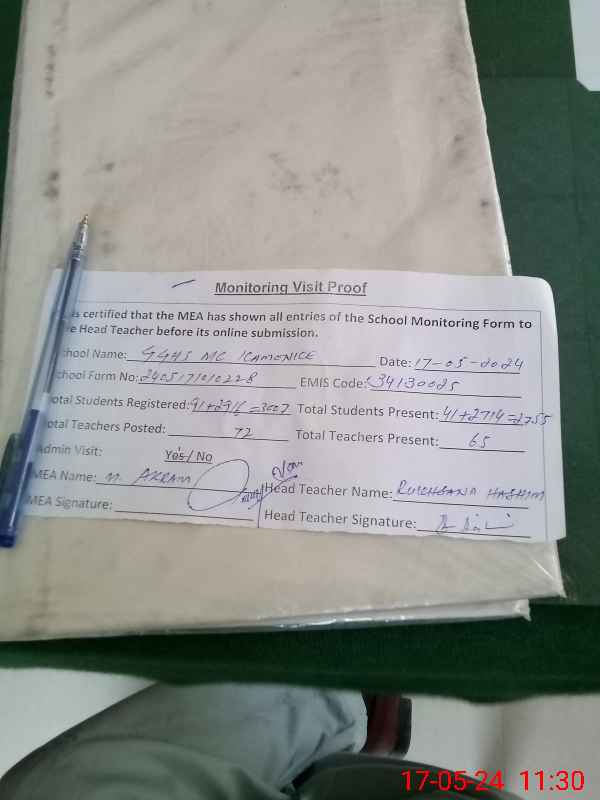 Monitoring Visit Proof
is certified that the MEA has shown all entries of the School Monitoring Form to
e Head Teacher before its online submission.
chool Name: GGHS MC KAMONKE Date: 17-05-2024
chool Form No: 2405171010228 EMIS Code: 34130025
otal Students Registered: 91+2916=3007 Total Students Present: 41+2714=2755
otal Teachers Posted: 72 Total Teachers Present: 65
Admin Visit: Yes/ No
MEA Name: M. AKRAM Head Teacher Name: RUKHSANA HASHIM
MEA Signature: Head Teacher Signature:
17-05-24 11:30